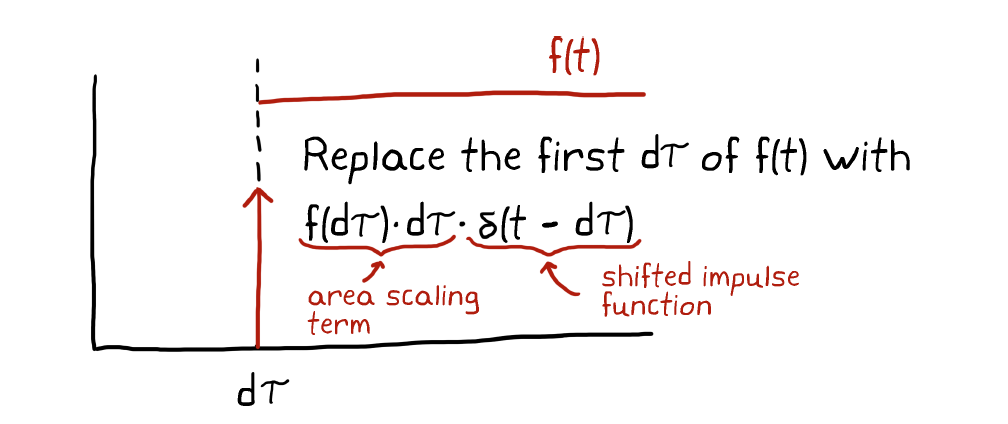 f(t)
Replace the first dτ of f(t) with
f(dτ)·dτ·δ(t - dτ)
area scaling
term
shifted impulse
function
dτ